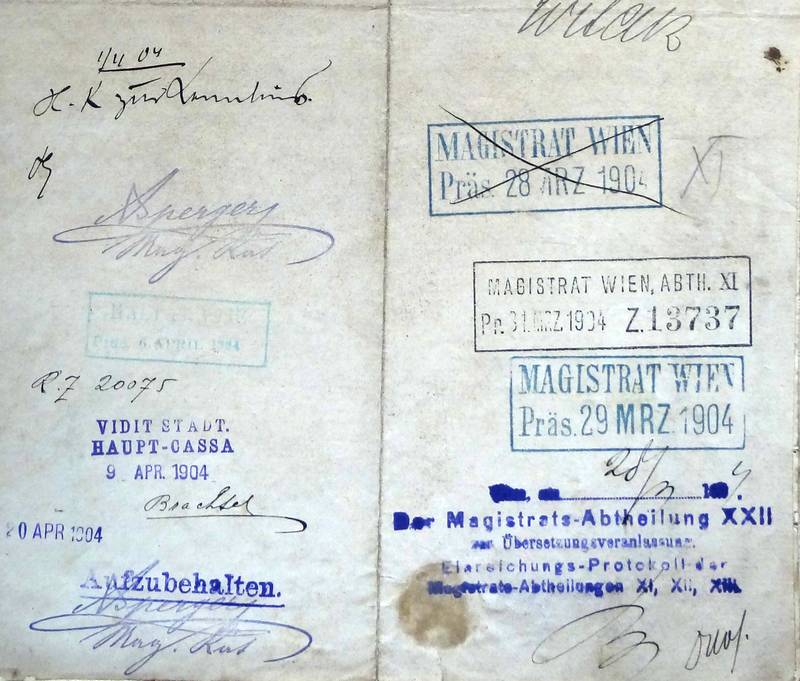 1/4 04
H. K. zur Kenntnis.
Asperger
Mag. Rat
Präs. 6. APRIL 1904
R. Z 20075
VIDIT STÄDT.
HAUPT-CASSA
9 APR. 1904
20 APR 1904
Aufzubehalten.
Asperger
Mag. Rat
MAGISTRAT WIEN
Präs. 28 MRZ 1904
XI
MAGISTRAT WIEN, ABTH. XI
Pr. 31. MRZ. 1904 Z. 13737
MAGISTRAT WIEN
Präs. 29 MRZ. 1904
Wien, am 28/3 1904.
Der Magistrats-Abtheilung XXII
zur Übersetzungsveranlassung.
Einreichungs-Protokoll der
Magistrats-Abtheilungen XI, XII, XIII.